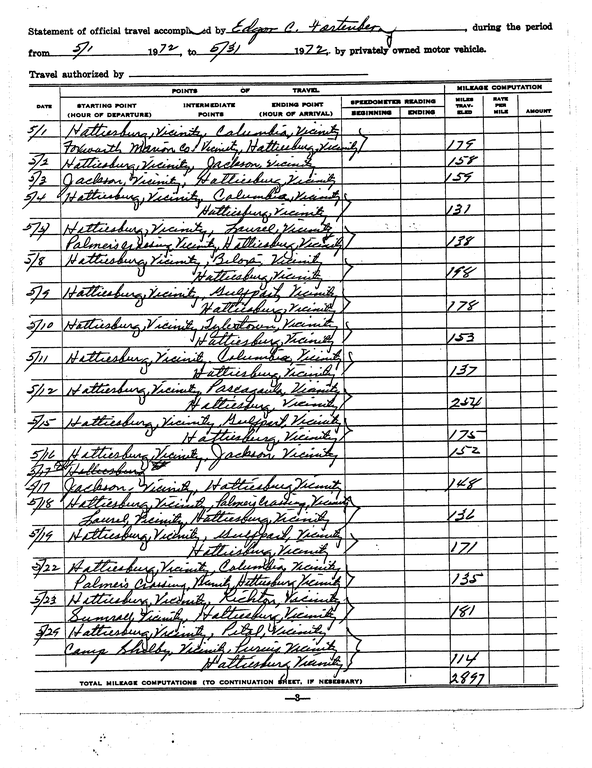 Statement of official travel accomplished by Edgar C. Fortenberry, during the period
from 5/1 1972, to 5/31 1972, by privately owned motor vehicle.
Travel authorized by
POINTS OF TRAVEL MILEAGE COMPUTATION
DATE STARTING POINT (HOUR OF DEPARTURE) INTERMEDIATE POINTS ENDING POINT (HOUR OF ARRIVAL) SPEEDOMETER READING BEGINNING ENDING MILES TRAVELED RATE PER MILE AMOUNT
5/1 Hattiesburg, Vicinity, Columbia, Vicinity
Foxworth Marion Co. Vicinity, Hattiesburg, Vicinity 179
5/2 Hattiesburg, Vicinity, Jackson, Vicinity 158
5/3 Jackson, Vicinity, Hattiesburg, Vicinity 159
5/4 Hattiesburg, Vicinity, Columbia, Vicinity
Hattiesburg, Vicinity 131
Hattiesburg, Vicinity, Laurel, Vicinity
Palmers Crossing Vicinity, Hattiesburg, Vicinity 138
5/8 Hattiesburg, Vicinity, Biloxi, Vicinity
Hattiesburg, Vicinity 198
5/9 Hattiesburg, Vicinity, Gulfport, Vicinity
Hattiesburg, Vicinity 178
5/10 Hattiesburg, Vicinity, Tylertown, Vicinity
Hattiesburg, Vicinity 153
5/11 Hattiesburg, Vicinity, Columbia, Vicinity
Hattiesburg, Vicinity 137
5/12 Hattiesburg, Vicinity, Pascagoula, Vicinity
Hattiesburg, Vicinity 254
5/15 Hattiesburg, Vicinity, Gulfport, Vicinity
Hattiesburg, Vicinity 175
5/16 Hattiesburg, Vicinity, Jackson, Vicinity 152
5/17 Hattiesburg
5/17 Jackson, Vicinity, Hattiesburg, Vicinity 148
5/18 Hattiesburg, Vicinity, Palmers Crossing, Vicinity
Laurel, Vicinity, Hattiesburg, Vicinity 136
5/19 Hattiesburg, Vicinity, Gulfport, Vicinity
Hattiesburg, Vicinity 171
5/22 Hattiesburg, Vicinity, Columbia, Vicinity
Palmers Crossing, Vicinity, Hattiesburg, Vicinity 135
5/23 Hattiesburg, Vicinity, Richton, Vicinity
Sumrall, Vicinity, Hattiesburg, Vicinity 181
5/25 Hattiesburg, Vicinity, Petal, Vicinity
Camp Shelby, Vicinity, Purvis, Vicinity
Hattiesburg, Vicinity 114
TOTAL MILEAGE COMPUTATIONS (TO CONTINUATION SHEET, IF NESESSARY) 2897
—3—